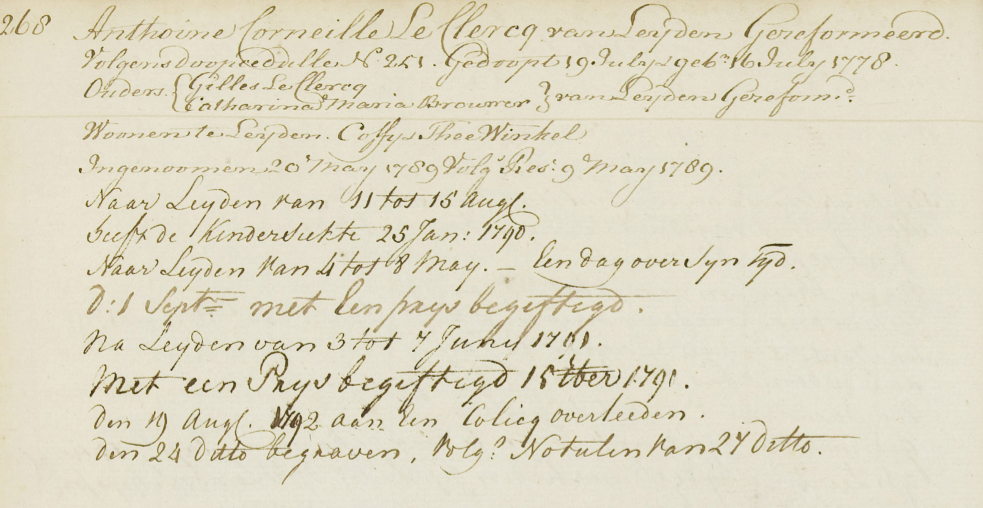 268 Anthoine Corneille Le Clercq van Leyden Gereformeerd.
Volgens doopcedulle N.° 251. Gedoopt 19 July geb.n 16 July 1778.
Ouders { Gilles Le Clercq
Catharina Maria Brouwer } van Leyden Gerefom.d
Woonen te Leyden. Coffy Thee Winkel
Ingenoomen 20 May 1789 Volgs Res: 9 May 1789.
Naar Leyden van 11 tot 15 Augs.
heeft de Kindersiekte 25 Jan: 1790.
Naar Leyden van 4 tot 8 May. – Een dag over syn tyd.
D: 1 Sept.r met Een prys begiftigd.
Na Leyden van 3 tot 7 Juny 1791.
Met een Prys begiftigd 15 1791.
den 19 Augs. 1792 aan Een Colicq overleeden.
den 24 ditto begraven, volgs. Notulen van 27 ditto.